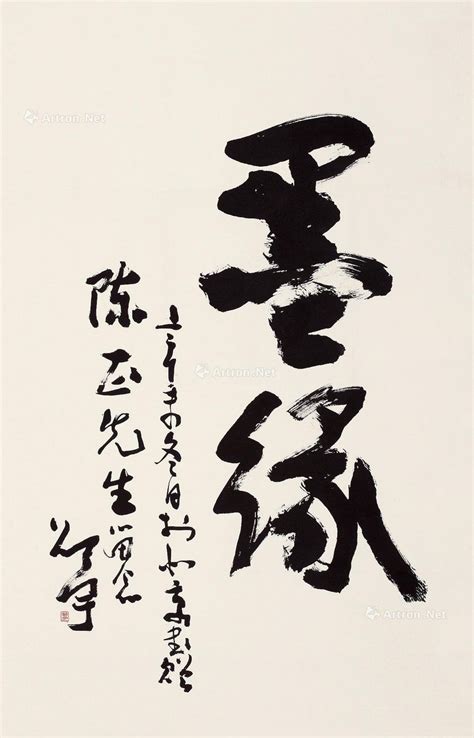 墨缘
辛未冬日於北京书赠
陈正先生留念
Artron.Net
Artron.Net
Artron.Net